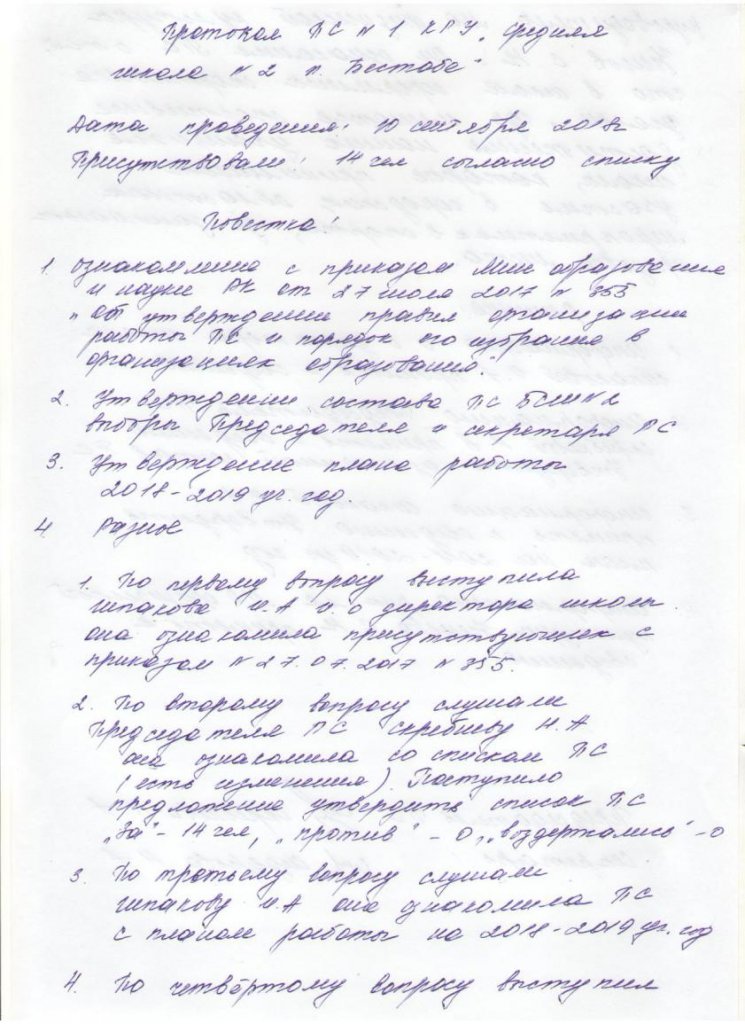 Протокол ПС № 1 КГУ "средняя
школа № 2 п. Бестобе"
Дата проведения: 10 сентября 2018г
Присутствовали: 14 чел согласно списку
Повестка:
1. ознакомление с приказом Мин образования
и науки РК от 27 июля 2017 № 355
"Об утверждении правил организации
работы ПС и порядок его избрание в
организациях образования."
2. Утверждении состава ПС БСШ№2
выборы Председателя и секретаря ПС
3. Утверждение плана работы
2018-2019 уч. год.
4. Разное
1. По первому вопросу выступила
Шпакова И.А и.о директора школы.
она ознакомила присутствующих с
приказом № 27.07.2017 № 355.
2. По второму вопросу слушали
Председателя ПС Скребневу Н.А
она ознакомила со списком ПС
(есть изменения). Поступило
предложение утвердить список ПС
"За" - 14 чел, "против" - 0, "воздержались" - 0
3. По третьему вопросу слушали
Шпакову И.А она ознакомила ПС
с планом работы на 2018-2019 уч. год
4. По четвёртому вопросу выступил